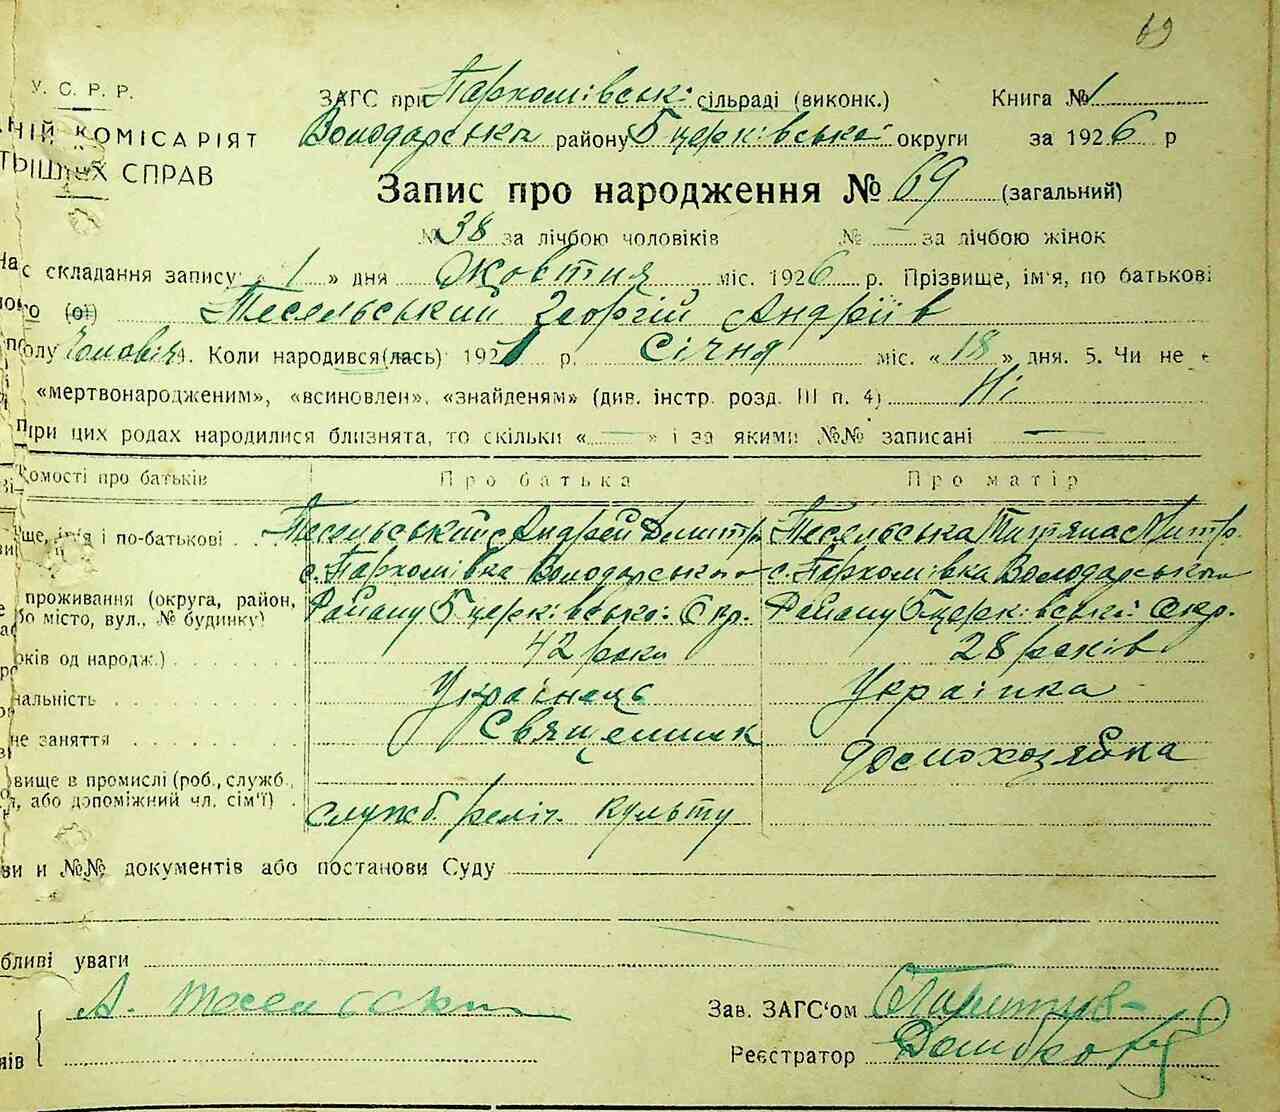 69
У. С. Р. Р.
ЗАГС при Пархомівські сільраді (виконк.) Книга № 1
НІЙ КОМІСАРІЯТ
Володарська району Бцерківської округи за 1926 р
СПРАВ
Запис про народження № 69 (загальний)
№ 38 за лічбою чоловіків № — за лічбою жінок
с складання запису: « 1 » дня Жовтня міс. 1926 р. Прізвище, ім'я, по батькові
(ої) Тесельський Георгій Андріїв
Коли народився(лась) 192 р. Січня міс. « 18 » дня. 5. Чи не є
«мертвонародженим», «всиновлен», «знайденям» (див. інстр. розд. III п. 4) Ні
При цих родах народилися близнята, то скільки « — » і за якими №№ записані —
омості про батьків Про батька Про матір
ще, ім'я і по-батькові Тесельський Андрей Дмитр. Тесельська Титяна Митр.
с. Пархомівка Володарського с. Пархомівка Володарського
проживання (округа, район, Району Бцерківської Окр. Району Бцерківської Окр.
бо місто, вул., № будинку)
оків од народж.) 42 роки 28 років
нальність Українець Українка
не заняття Священник домохозяйка
вище в промислі (роб., служб.,
або допоміжний чл. сім'ї) служб. реліг. культу
ви и №№ документів або постанови Суду
бливі уваги
А. Тесельски Зав. ЗАГС'ом
Реєстратор